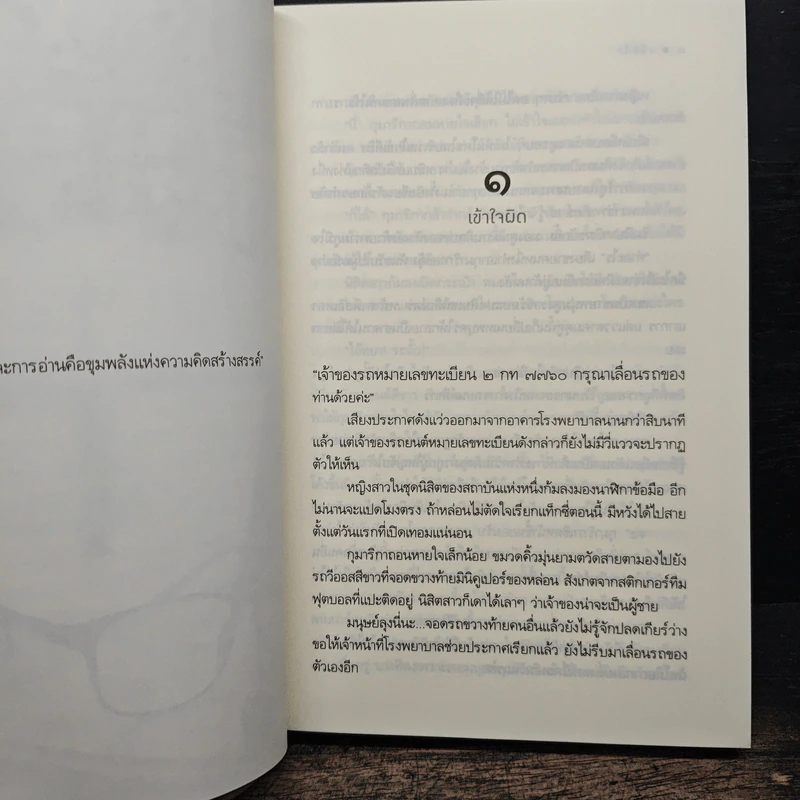 ละการอ่านคือขุมพลังแห่งความคิดสร้างสรรค์"
๑
เข้าใจผิด
"เจ้าของรถหมายเลขทะเบียน ๒ กท ๗๗๖๐ กรุณาเลื่อนรถของ
ท่านด้วยค่ะ"
เสียงประกาศดังแว่วออกมาจากอาคารโรงพยาบาลนานกว่าสิบนาที
แล้ว แต่เจ้าของรถยนต์หมายเลขทะเบียนดังกล่าวก็ยังไม่มีวี่แววจะปรากฏ
ตัวให้เห็น
หญิงสาวในชุดนิสิตของสถาบันแห่งหนึ่งก้มลงมองนาฬิกาข้อมือ อีก
ไม่นานจะแปดโมงตรง ถ้าหล่อนไม่ตัดใจเรียกแท็กซี่ตอนนี้ มีหวังได้ไปสาย
ตั้งแต่วันแรกที่เปิดเทอมแน่นอน
กุมาริกาถอนหายใจเล็กน้อย ขมวดคิ้วมุ่นยามตวัดสายตามองไปยัง
รถวีออสสีขาวที่จอดขวางท้ายมินิคูเปอร์ของหล่อน สังเกตจากสติกเกอร์ทีม
ฟุตบอลที่แปะติดอยู่ นิสิตสาวก็เดาได้เลาๆ ว่าเจ้าของน่าจะเป็นผู้ชาย
มนุษย์ลุงนี่นะ...จอดรถขวางท้ายคนอื่นแล้วยังไม่รู้จักปลดเกียร์ว่าง
ขอให้เจ้าหน้าที่โรงพยาบาลช่วยประกาศเรียกแล้ว ยังไม่รีบมาเลื่อนรถของ
ตัวเองอีก